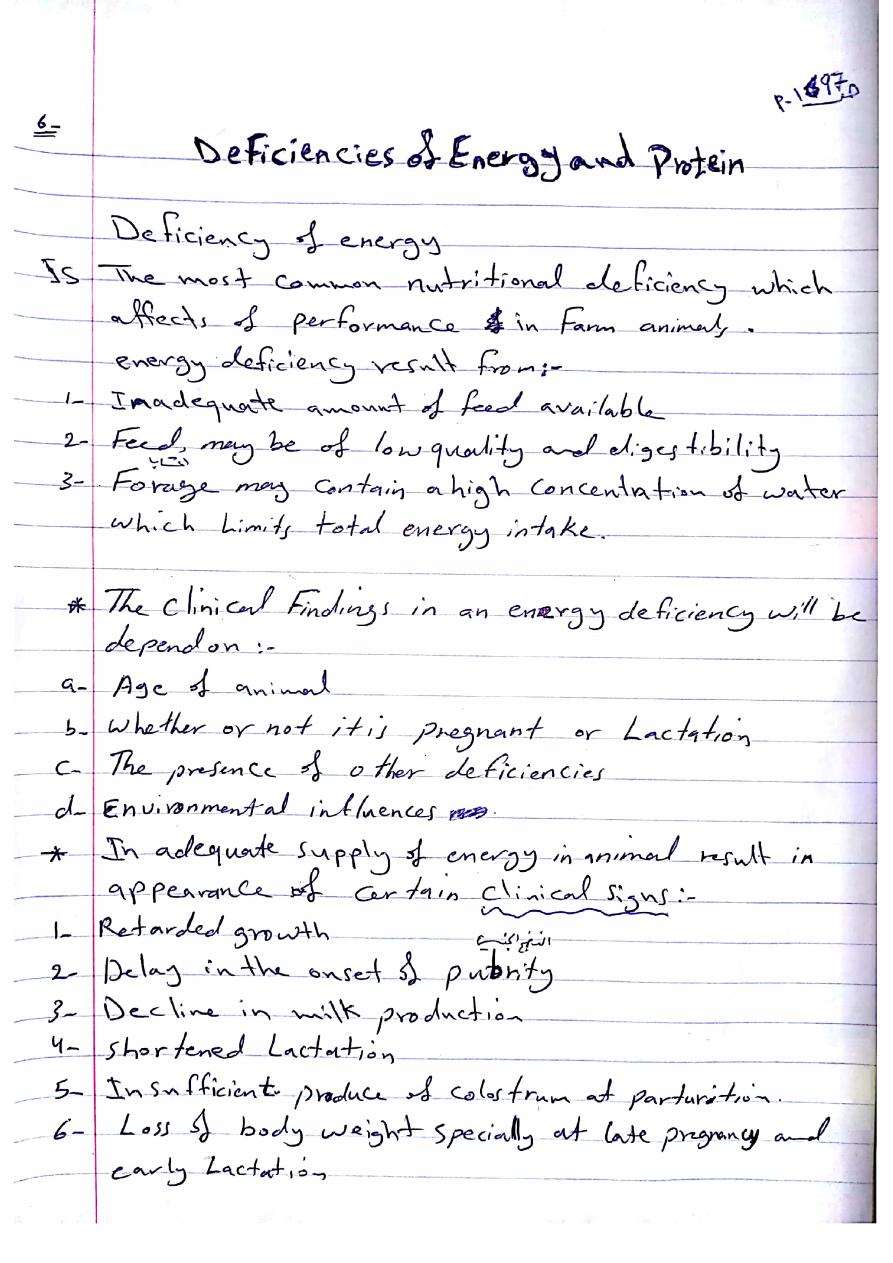 P-1697
6-
Deficiencies of Energy and Protein
Deficiency of energy
Is The most common nutritional deficiency which
affects of performance in Farm animals.
energy deficiency result from:-
1- Inadequate amount of feed available
2- Feed, may be of low quality and digestibility
3- Forage may contain a high concentration of water
which Limits total energy intake.
* The clinical Findings in an energy deficiency will be
depend on :-
a- Age of animal
b- Whether or not it is pregnant or Lactation
c- The presence of other deficiencies
d- Environmental influences
* In adequate supply of energy in animal result in
appearance of certain clinical signs:-
1- Retarded growth
2- Delay in the onset of pubrity
3- Decline in milk production
4- shortened Lactation
5- Insufficient produce of colostrum at parturition.
6- Loss of body weight specially at late pregnancy and
early Lactation